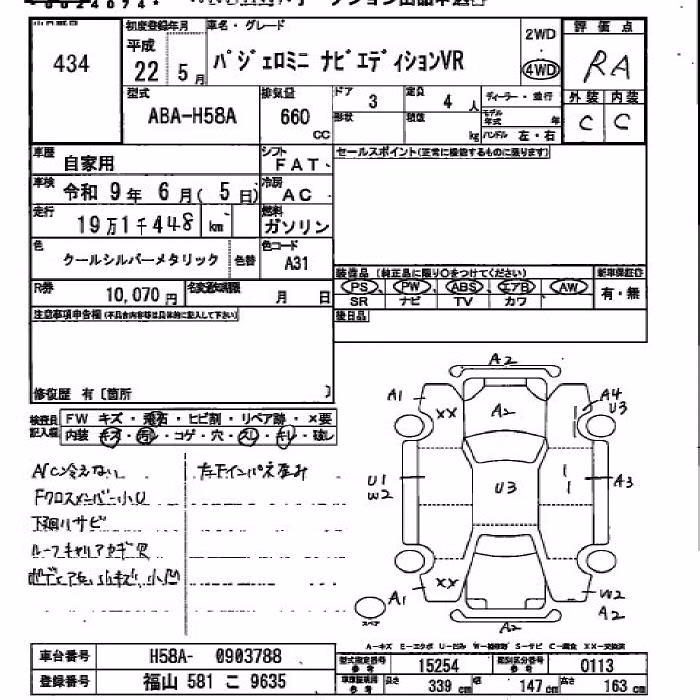 434
初度登録年月
平成
22 5月
車名・グレード
パジェロミニ ナビエディションVR
2WD
4WD
評価点
RA
型式
ABA-H58A
排気量
660
CC
ドア
3
定員
4 人
形状
積載
kg
ディーラー・並行
モデル年式 年
ハンドル 左・右
外装 内装
C C
車歴
自家用
シフト
FAT
セールスポイント(正常に機能するものに限ります)
車検
令和 9年 6月( 5日)
冷房
AC
走行
19万1千448 km
燃料
ガソリン
色
クールシルバーメタリック
色替
色コード
A31
装備品(純正品に限り○をつけてください)
新車保証書
PS PW ABS エアB AW
SR ナビ TV カワ
有・無
R券
10,070円
名変期限
月 日
後日品
注意事項申告欄(不具合内容等は具体的に記入して下さい)
修復歴 有〔箇所 〕
検査員記入欄
FW キズ・飛石・ヒビ割・リペア跡・×要
内装 キズ・汚レ・コゲ・穴・スレ・キレ・破レ
A/C冷えない
左下インパネ歪み
Fクロスメンバー小U
下廻りサビ
A2
A1
XX
A2
A4
U3
U1
W2
U3
A3
A1
XX
W2
A2
A2
スペア
A-キズ E-エクボ U-凹み W-補修跡 S-サビ C-腐食 XX-交換済
車台番号
H58A- 0903788
登録番号
福山 581 こ 9635
型式指定番号
参考
15254
類別区分番号
参考
0113
参考
長さ
339 cm
幅
147 cm
高さ
163 cm